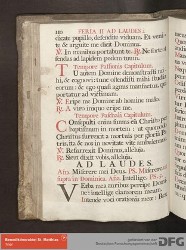 110 FERIA II AD LAUDES.
cicate pupillo, defendite viduam. Et veni-
te & arguite me dicit Dominus.
V. In manibus portabunt te. R. Ne forte of-
fendas ad lapidem pedem tuum.
Tempore Passionis Capitulum.
TU autem Domine demonstrasti mi-
hi, & cognovi: tunc ostendisti mihi studia
eorum: & ego quasi agnus mansuetus, qui
portatur ad victimam.
V. Eripe me Domine ab homine malo.
R. A viro iniquo eripe me.
Tempore Paschali Capitulum.
Consepulti enim sumus cū Christo per
baptismum in mortem: ut quomodo
Christus surrexit à mortuis per gloriā Pa-
tris, ita & nos in novitate vitæ ambulemus.
V. Resurrexit Dominus, alleluia.
R. Sicut dixit vobis, alleluia.
AD LAUDES.
Aña Miserere mei Deus. PS. Miserere
supra in Dominica. Aña Intellige. PS. 5.
VErba mea auribus percipe Domi-
ne: intellige clamorem meum.
Intende voci orationis meæ: Rex
DFG